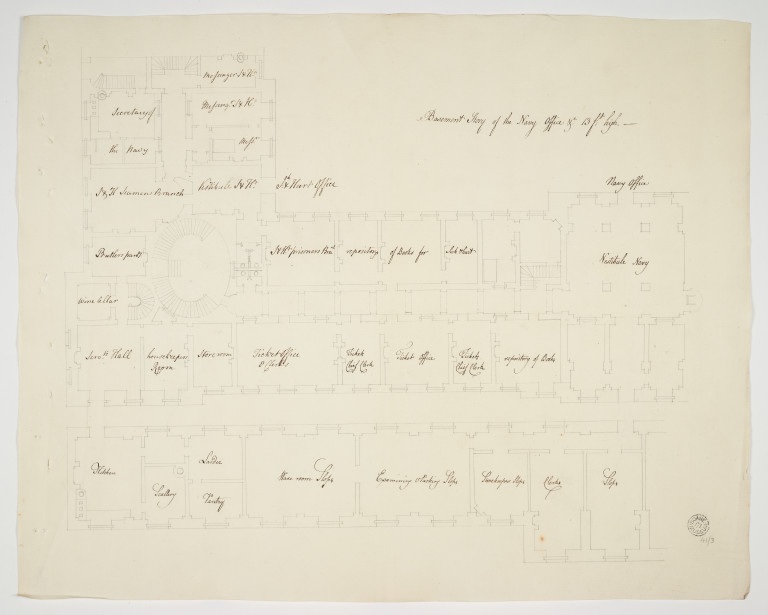 Basement Story of the Navy Office & 13 ft high. —
Messenger S & H.
Messengr. S & H.
Messr.
Secretary of
the Navy
S & H Seamens Branch
Vestibule S & H.
S & Hurt Office
Navy Office
Butlers pantry
S & H prisoners Bran.
repository
of Books for
Sick & hurt
Vestibule Navy
wine Cellar
Servts. Hall
housekeepers
Room
Store room
Ticket Office
8 Clerks
Tickets
Chief Clerk
Ticket Office
Tickets
Chief Clerk
repository of Books
Kitchen
Scullery
Larder
Pantry
Ware room Slops
Examining & packing Slops
Slops
Clerks
Slops